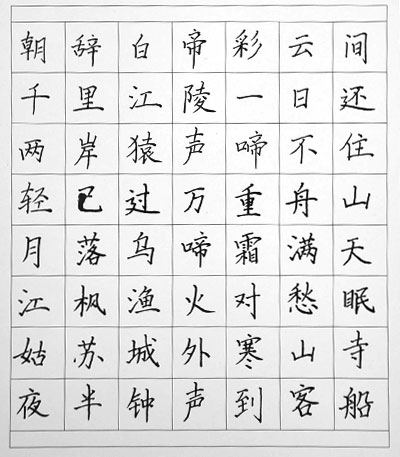 朝辞白帝彩云间
千里江陵一日还
两岸猿声啼不住
轻已过万重舟山
月落乌啼霜满天
江枫渔火对愁眠
姑苏城外寒山寺
夜半钟声到客船